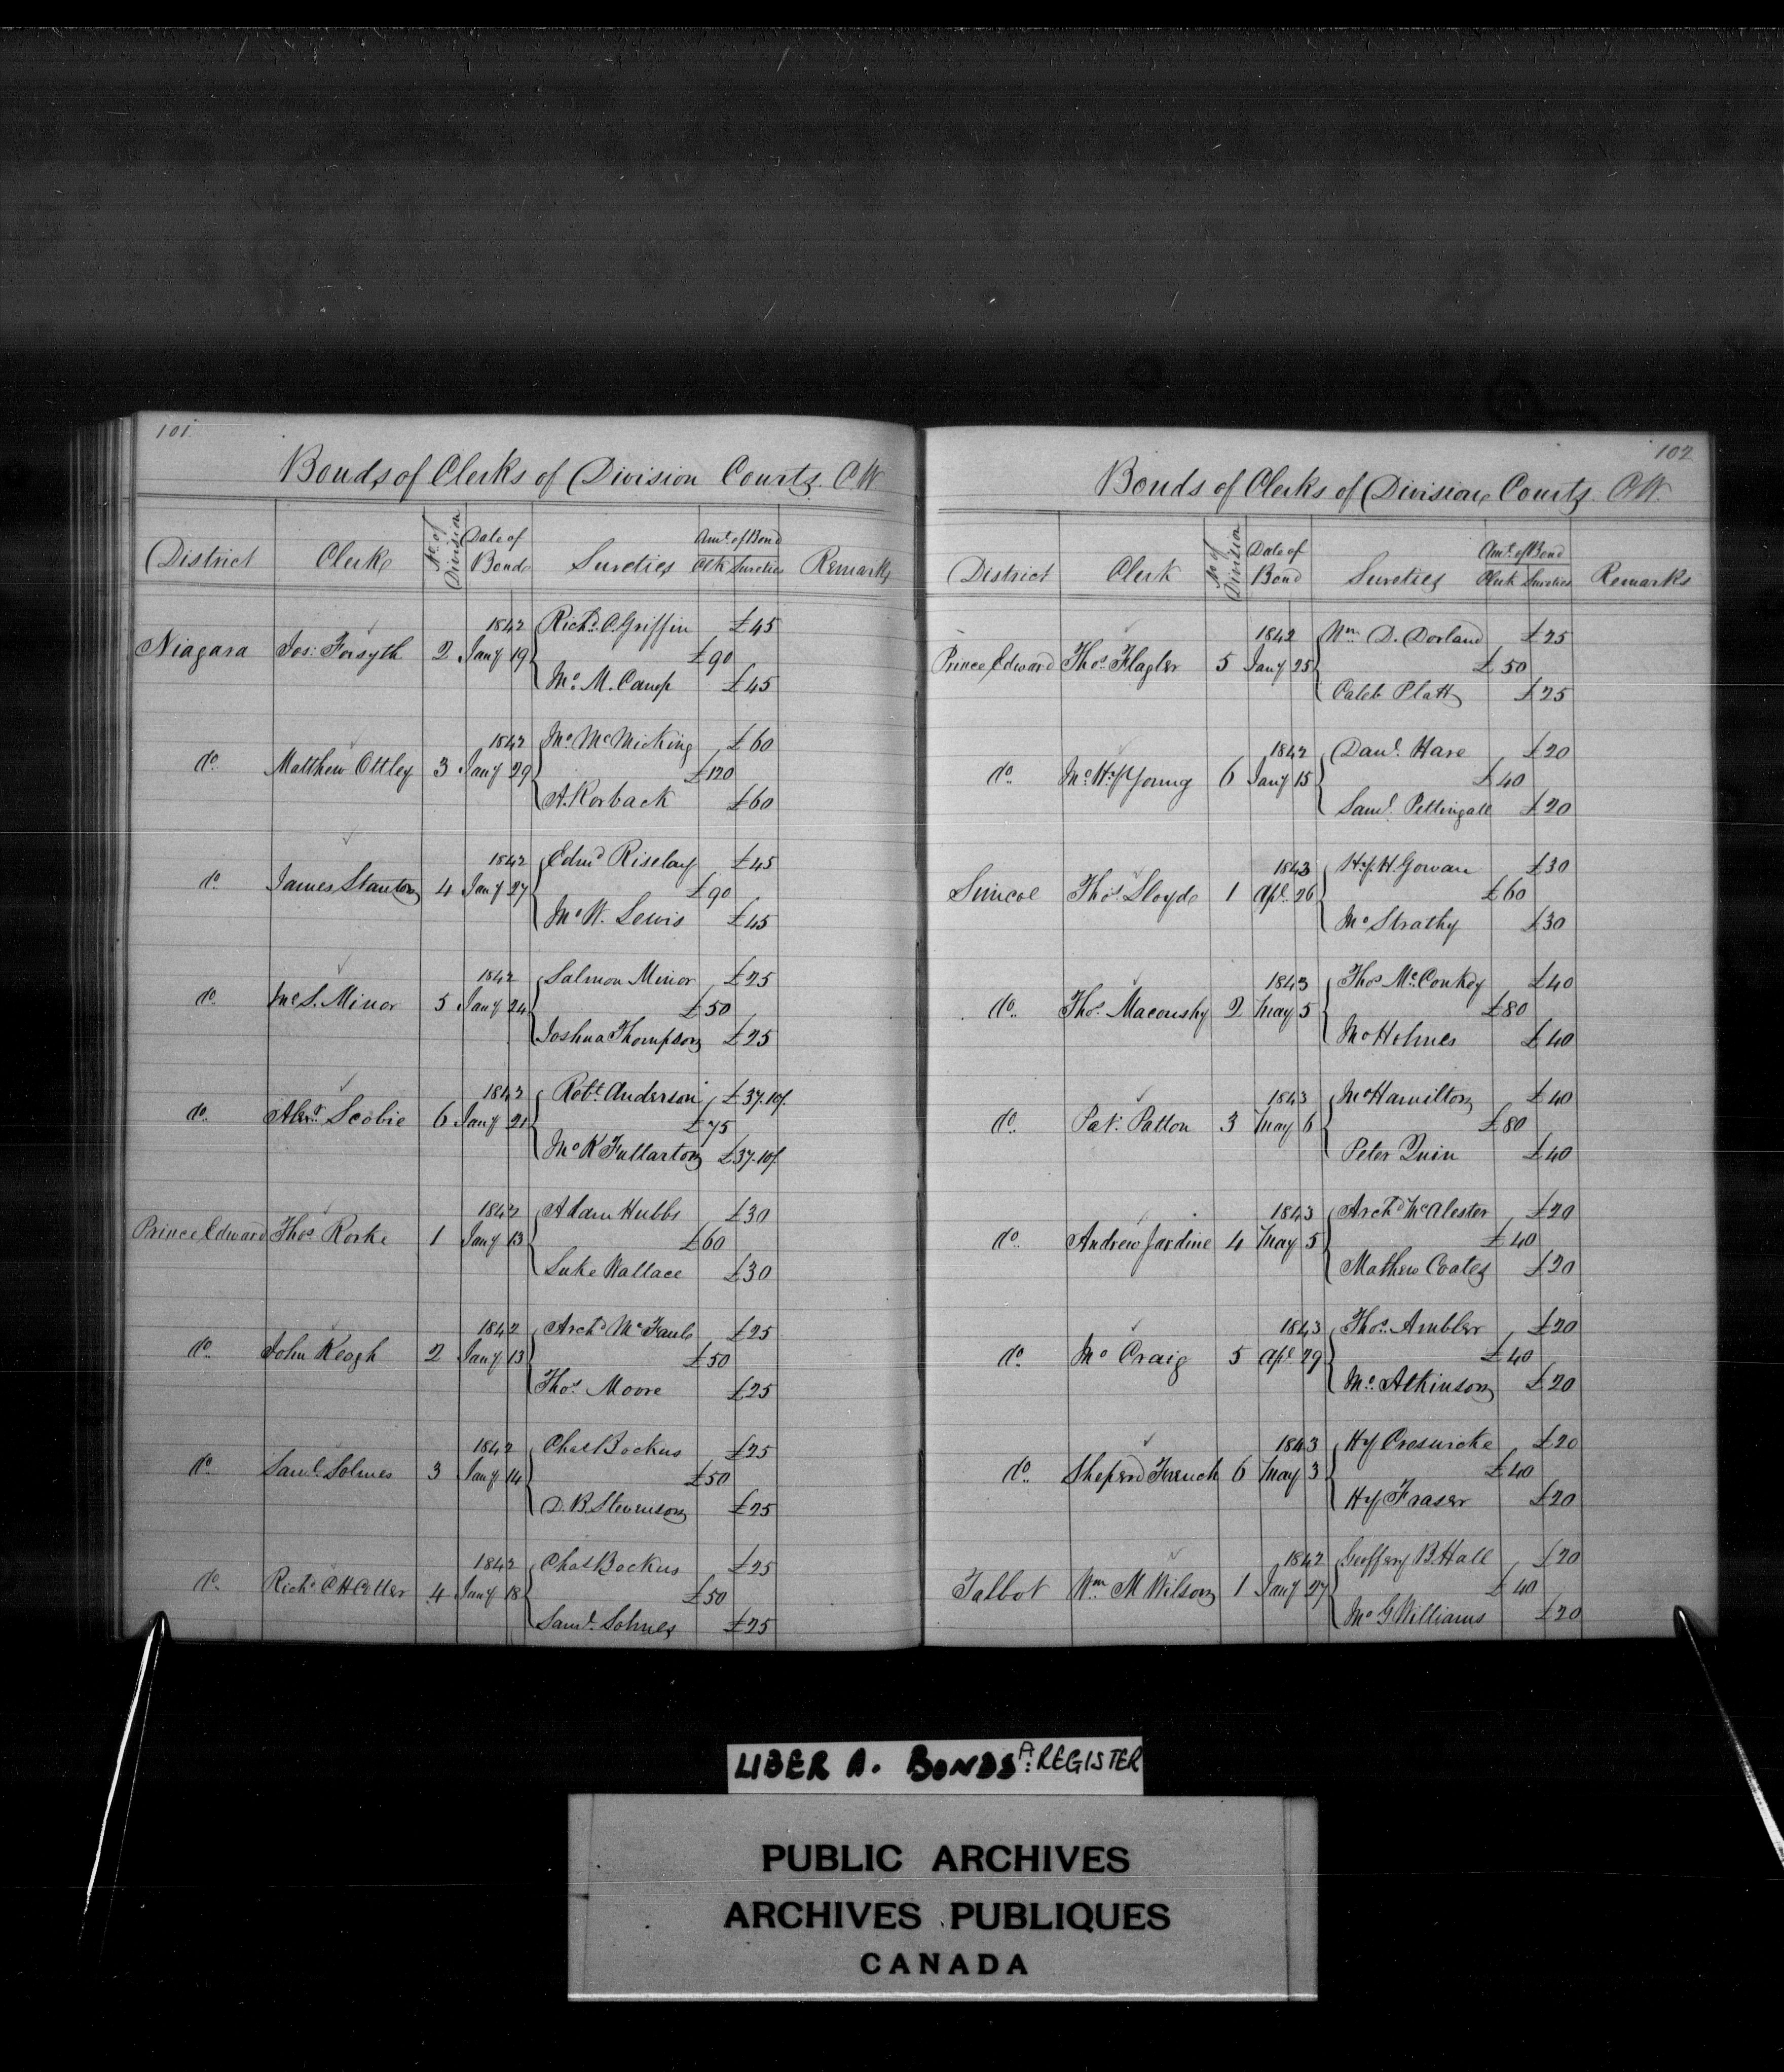 101
Bonds of Clerks of Division Courts. C W.
District Clerk No. of Division Date of Bond Sureties Amt. of Bond Clk Sureties Remarks
1842 Richd. C. Griffin £45
Niagara Jos: Forsyth 2 Jany 19 £90
Jno. M. Camp £45
1842 Jno. McMicking £60
do. Matthew Ottley 3 Jany 29 £120
A. Korback £60
1842 Edmd Riselay £45
do. James Stanton 4 Jany 27 £90
Jno W. Lewis £45
1842 Salmon Minor £25
do. Jno S. Minor 5 Jany 24 £50
Joshua Thompson £25
1842 Robt. Anderson £37.10/.
do. Alexr. Scobie 6 Jany 21 £75
Jno K Fullarton £37.10/.
1842 Adam Hubbs £30
Prince Edward Thos. Rorke 1 Jany 13 £60
Luke Wallace £30
1842 Archd McFaul £25
do. John Keogh 2 Jany 13 £50
Thos. Moore £25
1842 Chas Bockus £25
do. Saml. Solmes 3 Jany 14 £50
D. B. Stevenson £25
1842 Chas Bockus £25
do. Richd. 4 Jany 18 £50
Saml. Solmes £25
102
Bonds of Clerks of Division Courts C W.
District Clerk No of Division Date of Bond Sureties Amt. of Bond Clerk Sureties Remarks
1842 Wm. D. Dorland £25
Prince Edward Thos. Flagler 5 Jany 25 £50
Caleb Platt £25
1842 Danl. Hare £20
do. Jno. Hy Young 6 Jany 15 £40
Saml. Pettingall £20
1843 Hy. H. Gowan £30
Simcoe Thos. Lloyd 1 Apl. 26 £60
Jno Strathy £30
1843 Thos McConkey £40
do. Thos. Maconshy 2 May 5 £80
Jno Holmes £40
1843 Jno Hamilton £40
do. Pat: Patton 3 May 6 £80
Peter Quin £40
1843 Archd McAlester £20
do. Andrew Jardine 4 May 5 £40
Mathew Coates £20
1843 Thos. Ambler £20
do. Jno Craig 5 Apl. 29 £40
Jno. Atkinson £20
1843 Hy Creswicke £20
do. Sheperd French 6 May 3 £40
Hy. Fraser £20
1842 Geoffery B Hall £20
Talbot Wm. M Wilson 1 Jany 27 £40
Jno G Williams £20
LIBER A. BONDS A: REGISTER
PUBLIC ARCHIVES
ARCHIVES PUBLIQUES
CANADA